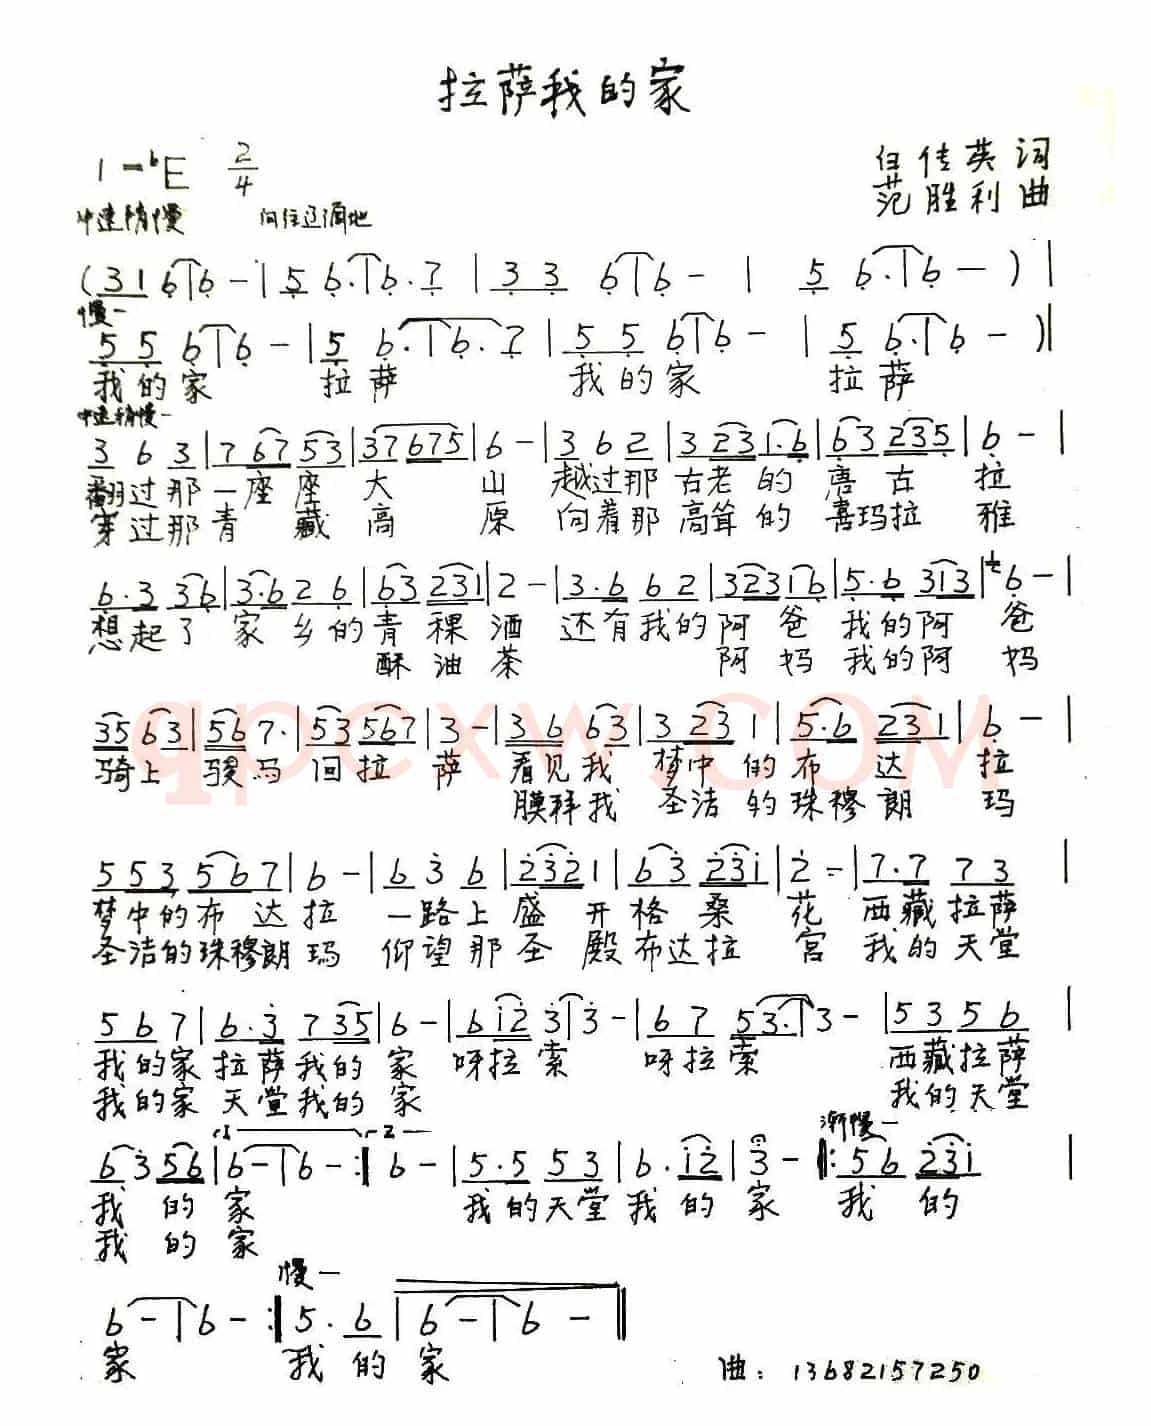 拉萨我的家
1=bE 2/4
白佳英词
范胜利曲
中速稍慢 向往辽阔地
(3 1 6 | 6 - | 5 6. | 6. 7 | 3 3 6 | 6 - | 5 6. | 6 - ) |
慢一
5 5 6 | 6 - | 5 6. | 6. 7 | 5 5 6 | 6 - | 5 6. | 6 - )|
我的家 拉萨 我的家 拉萨
中速稍慢一
3 6 3 | 7 67 53 | 37675 | 6 - | 3 6 2 | 3 23 1·6 | 63 235 | 6 - |
翻过那一座座大山 越过那古老的唐古拉
穿过那青藏高原 向着那高耸的喜玛拉雅
6·3 36 | 3·6 2 6 | 63 231 | 2 - | 3·6 6 2 | 323 16 | 5·6 313 | 6 - |
想起了家乡的青稞酒 还有我的阿爸我的阿爸
酥油茶 阿妈我的阿妈
35 63 | 56 7· | 53 567 | 3 - | 36 63 | 3 23 1 | 5·6 231 | 6 - |
骑上骏马回拉萨 看见我梦中的布达拉
膜拜我圣洁的珠穆朗玛
553 567 | 6 - | 6 3 6 | 2321 | 63 231 | 2 - | 7·7 73 |
梦中的布达拉 一路上盛开格桑花 西藏拉萨
圣洁的珠穆朗玛 仰望那圣殿布达拉宫 我的天堂
5 6 7 | 6·3 7 35 | 6 - | 6 12 3 | 3 - | 6 7 53· | 3 - | 53 56 |
我的家拉萨我的家 呀拉索 呀拉索 西藏拉萨
我的家天堂我的家 我的天堂
1 2 渐慢一
6 3 56 | 6 - | 6 - :| 6 - | 5·5 53 | 6·12 | 3 - |: 56 231 |
我的家 我的天堂我的家 我的
我的家
慢一
6 - | 6 - :| 5· 6 | 6 - | 6 - ‖
家 我的家
曲：13682157250
qpcxw.COM